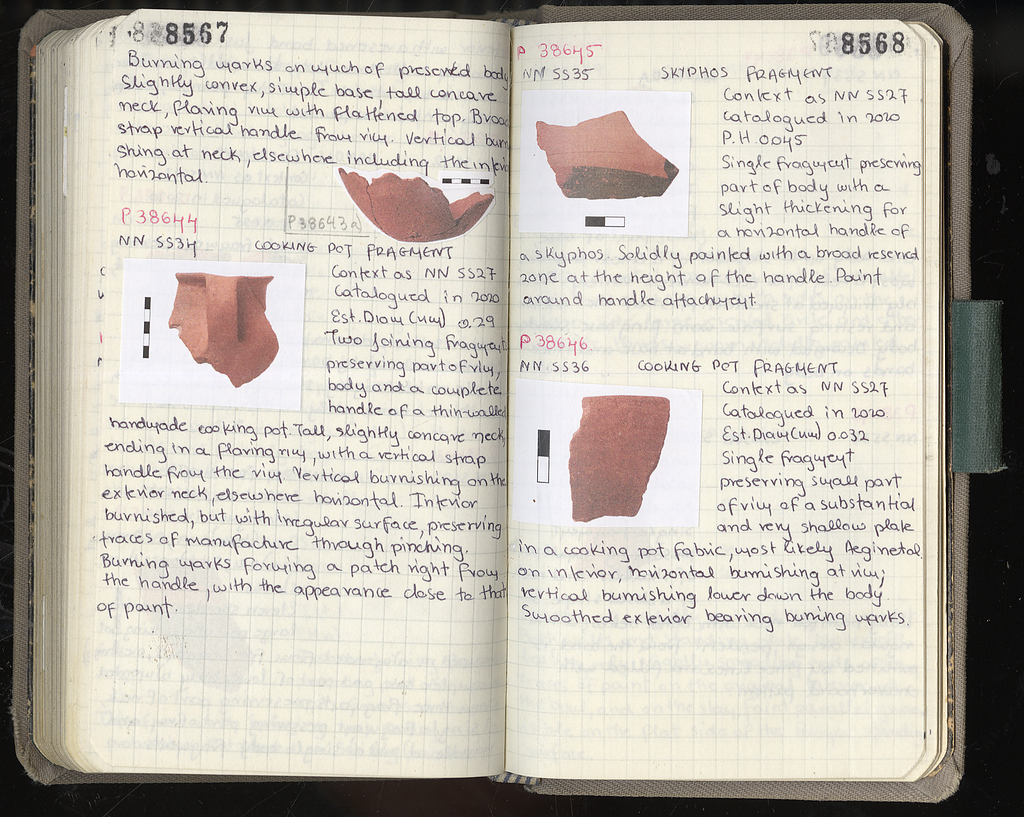 88567
Burning marks on much of preserved body
Slightly convex, simple base, tall concave
neck, flaring rim with flattened top. Broad
strap vertical handle from rim. Vertical burni
shing at neck, elsewhere including the interior
horizontal.
P38643a
P 38644
NN SS34 COOKING POT FRAGMENT
Context as NN SS27
Catalogued in 2020
Est. Diam (mm) 0.29
Two joining fragments
preserving part of rim,
body and a complete
handle of a thin-walled
handmade cooking pot. Tall, slightly concave neck
ending in a flaring rim, with a vertical strap
handle from the rim. Vertical burnishing on the
exterior neck, elsewhere horizontal. Interior
burnished, but with irregular surface, preserving
traces of manufacture through pinching.
Burning marks forming a patch right from
the handle, with the appearance close to that
of paint.
8568
P 38645
NN SS35 SKYPHOS FRAGMENT
Context as NN SS27
Catalogued in 2020
P.H. 0.045
Single fragment preserving
part of body with a
slight thickening for
a horizontal handle of
a skyphos. Solidly painted with a broad reserved
zone at the height of the handle. Paint
around handle attachment.
P 38646.
NN SS36 COOKING POT FRAGMENT
Context as NN SS27
Catalogued in 2020
Est. Diam (mm) 0.032
Single fragment
preserving small part
of rim of a substantial
and very shallow plate
in a cooking pot fabric, most likely Aeginetal.
on interior, horizontal burnishing at rim;
vertical burnishing lower down the body.
Smoothed exterior bearing burning marks.